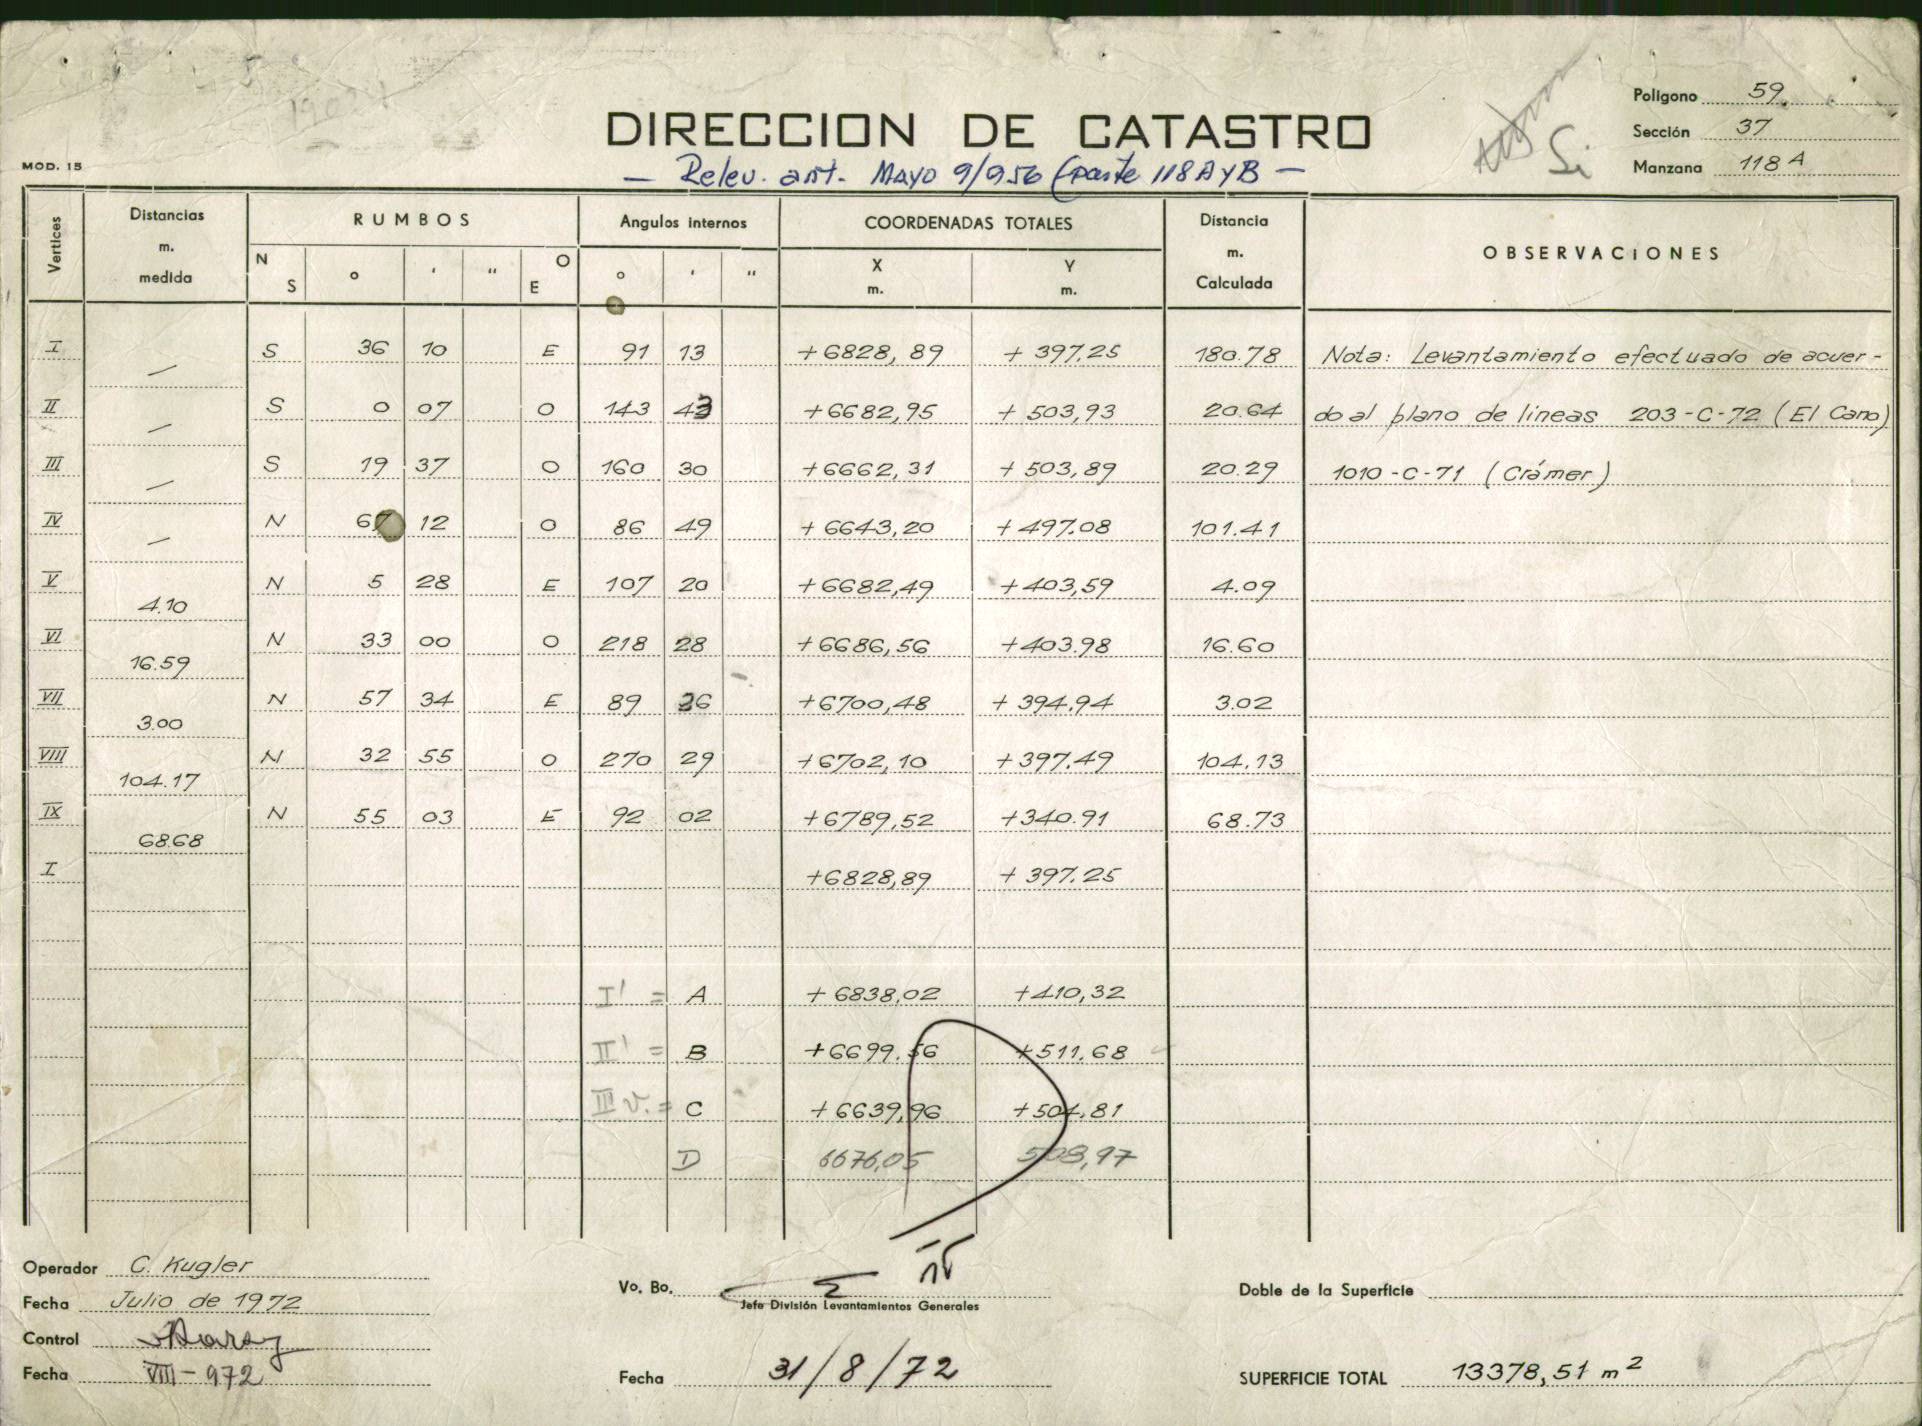 Polígono 59
DIRECCION DE CATASTRO
Sección 37
Si
MOD. 15
— Relev. ant. MAYO 9/956 (parte 118AyB —
Manzana 118 A
Vertices Distancias m. medida RUMBOS Angulos internos COORDENADAS TOTALES Distancia m. Calculada OBSERVACIONES
N S ° ' " O E ° ' " X m. Y m.
I — S 36 10 E 91 13 +6828,89 +397.25 180.78 Nota: Levantamiento efectuado de acuer-
II — S 0 07 O 143 43 +6682,95 +503,93 20.64 do al plano de lineas 203-C-72 (El Cano)
III — S 19 37 O 160 30 +6662,31 +503,89 20.29 1010-C-71 (Crámer)
IV — N 67 12 O 86 49 +6643,20 +497.08 101.41
V 4.10 N 5 28 E 107 20 +6682,49 +403,59 4.09
VI 16.59 N 33 00 O 218 28 +6686,56 +403.98 16.60
VII 3.00 N 57 34 E 89 26 +6700,48 +394.94 3.02
VIII 104.17 N 32 55 O 270 29 +6702,10 +397.49 104.13
IX 68.68 N 55 03 E 92 02 +6789,52 +340.91 68.73
I +6828,89 +397.25
I' = A +6838,02 +410,32
II' = B +6699.56 +511.68
III v. = C +6639,96 +504,81
D 6676,05 508,97
Operador C. Kugler
Fecha Julio de 1972
Vo. Bo.
Jefe División Levantamientos Generales
Doble de la Superficie
Control
Fecha VIII-972
Fecha 31/8/72
SUPERFICIE TOTAL 13378,51 m²